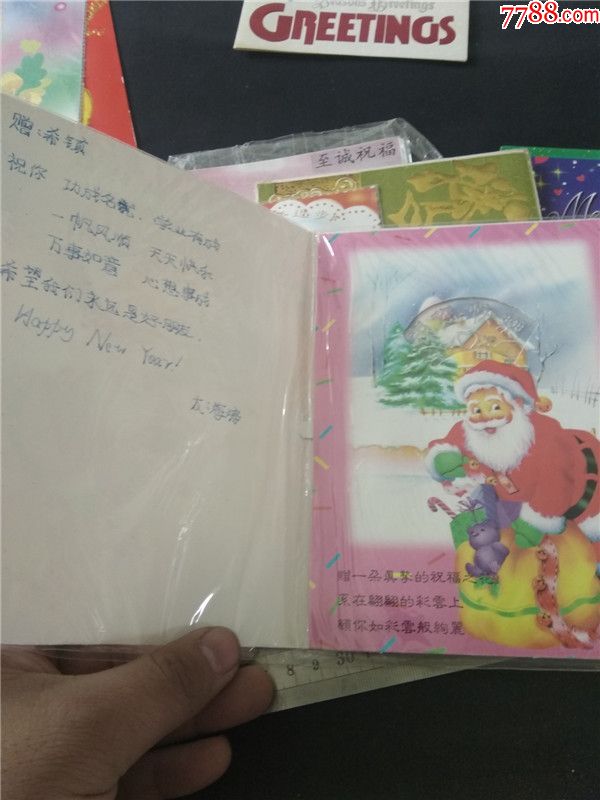 7788.com
Seasons Greetings
GREETINGS
至诚祝福
赠:希镇
祝你 功成名就. 学业有成
一帆风顺 天天快乐
万事如意 心想事成
希望我们永远是好朋友.
Happy New Year!
友:海涛
赠一朵真挚的祝福之花
系在翩翩的彩雲上
願你如彩雲般絢麗
8 9 30